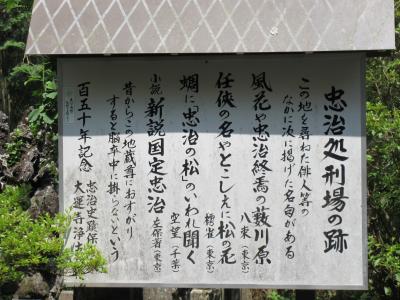 忠治処刑場の跡
この地を尋ねた俳人等の
なかに次に掲げた名句がある
風花や忠治終焉の薮川原
八束（東京）
任侠の名やとこしえに松の花
（東京）
蜩に「忠治の松」のいわれ聞く
空望（千葉）
小説 新説国定忠治 左保著（東京）
昔からこの地蔵尊におすがり
すると脳卒中に掛らないという
百五十年記念
忠治史蹟保
大運寺浄